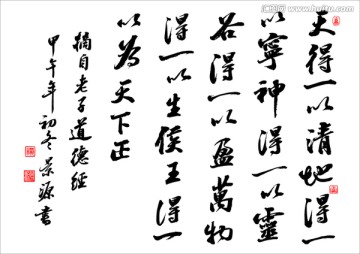 天得一以清地得一
以寧神得一以靈
谷得一以盈萬物
得一以生侯王得一
以為天下正
摘自老子道德經
甲午年初冬景源書